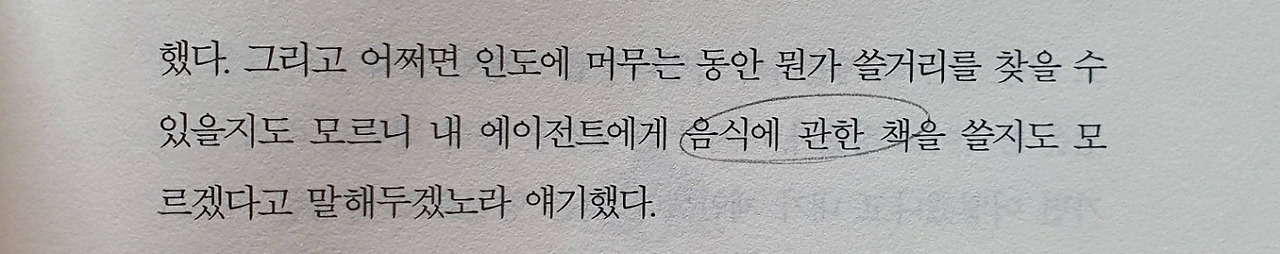 했다. 그리고 어쩌면 인도에 머무는 동안 뭔가 쓸거리를 찾을 수
있을지도 모르니 내 에이전트에게 음식에 관한 책을 쓸지도 모
르겠다고 말해두겠노라 얘기했다.